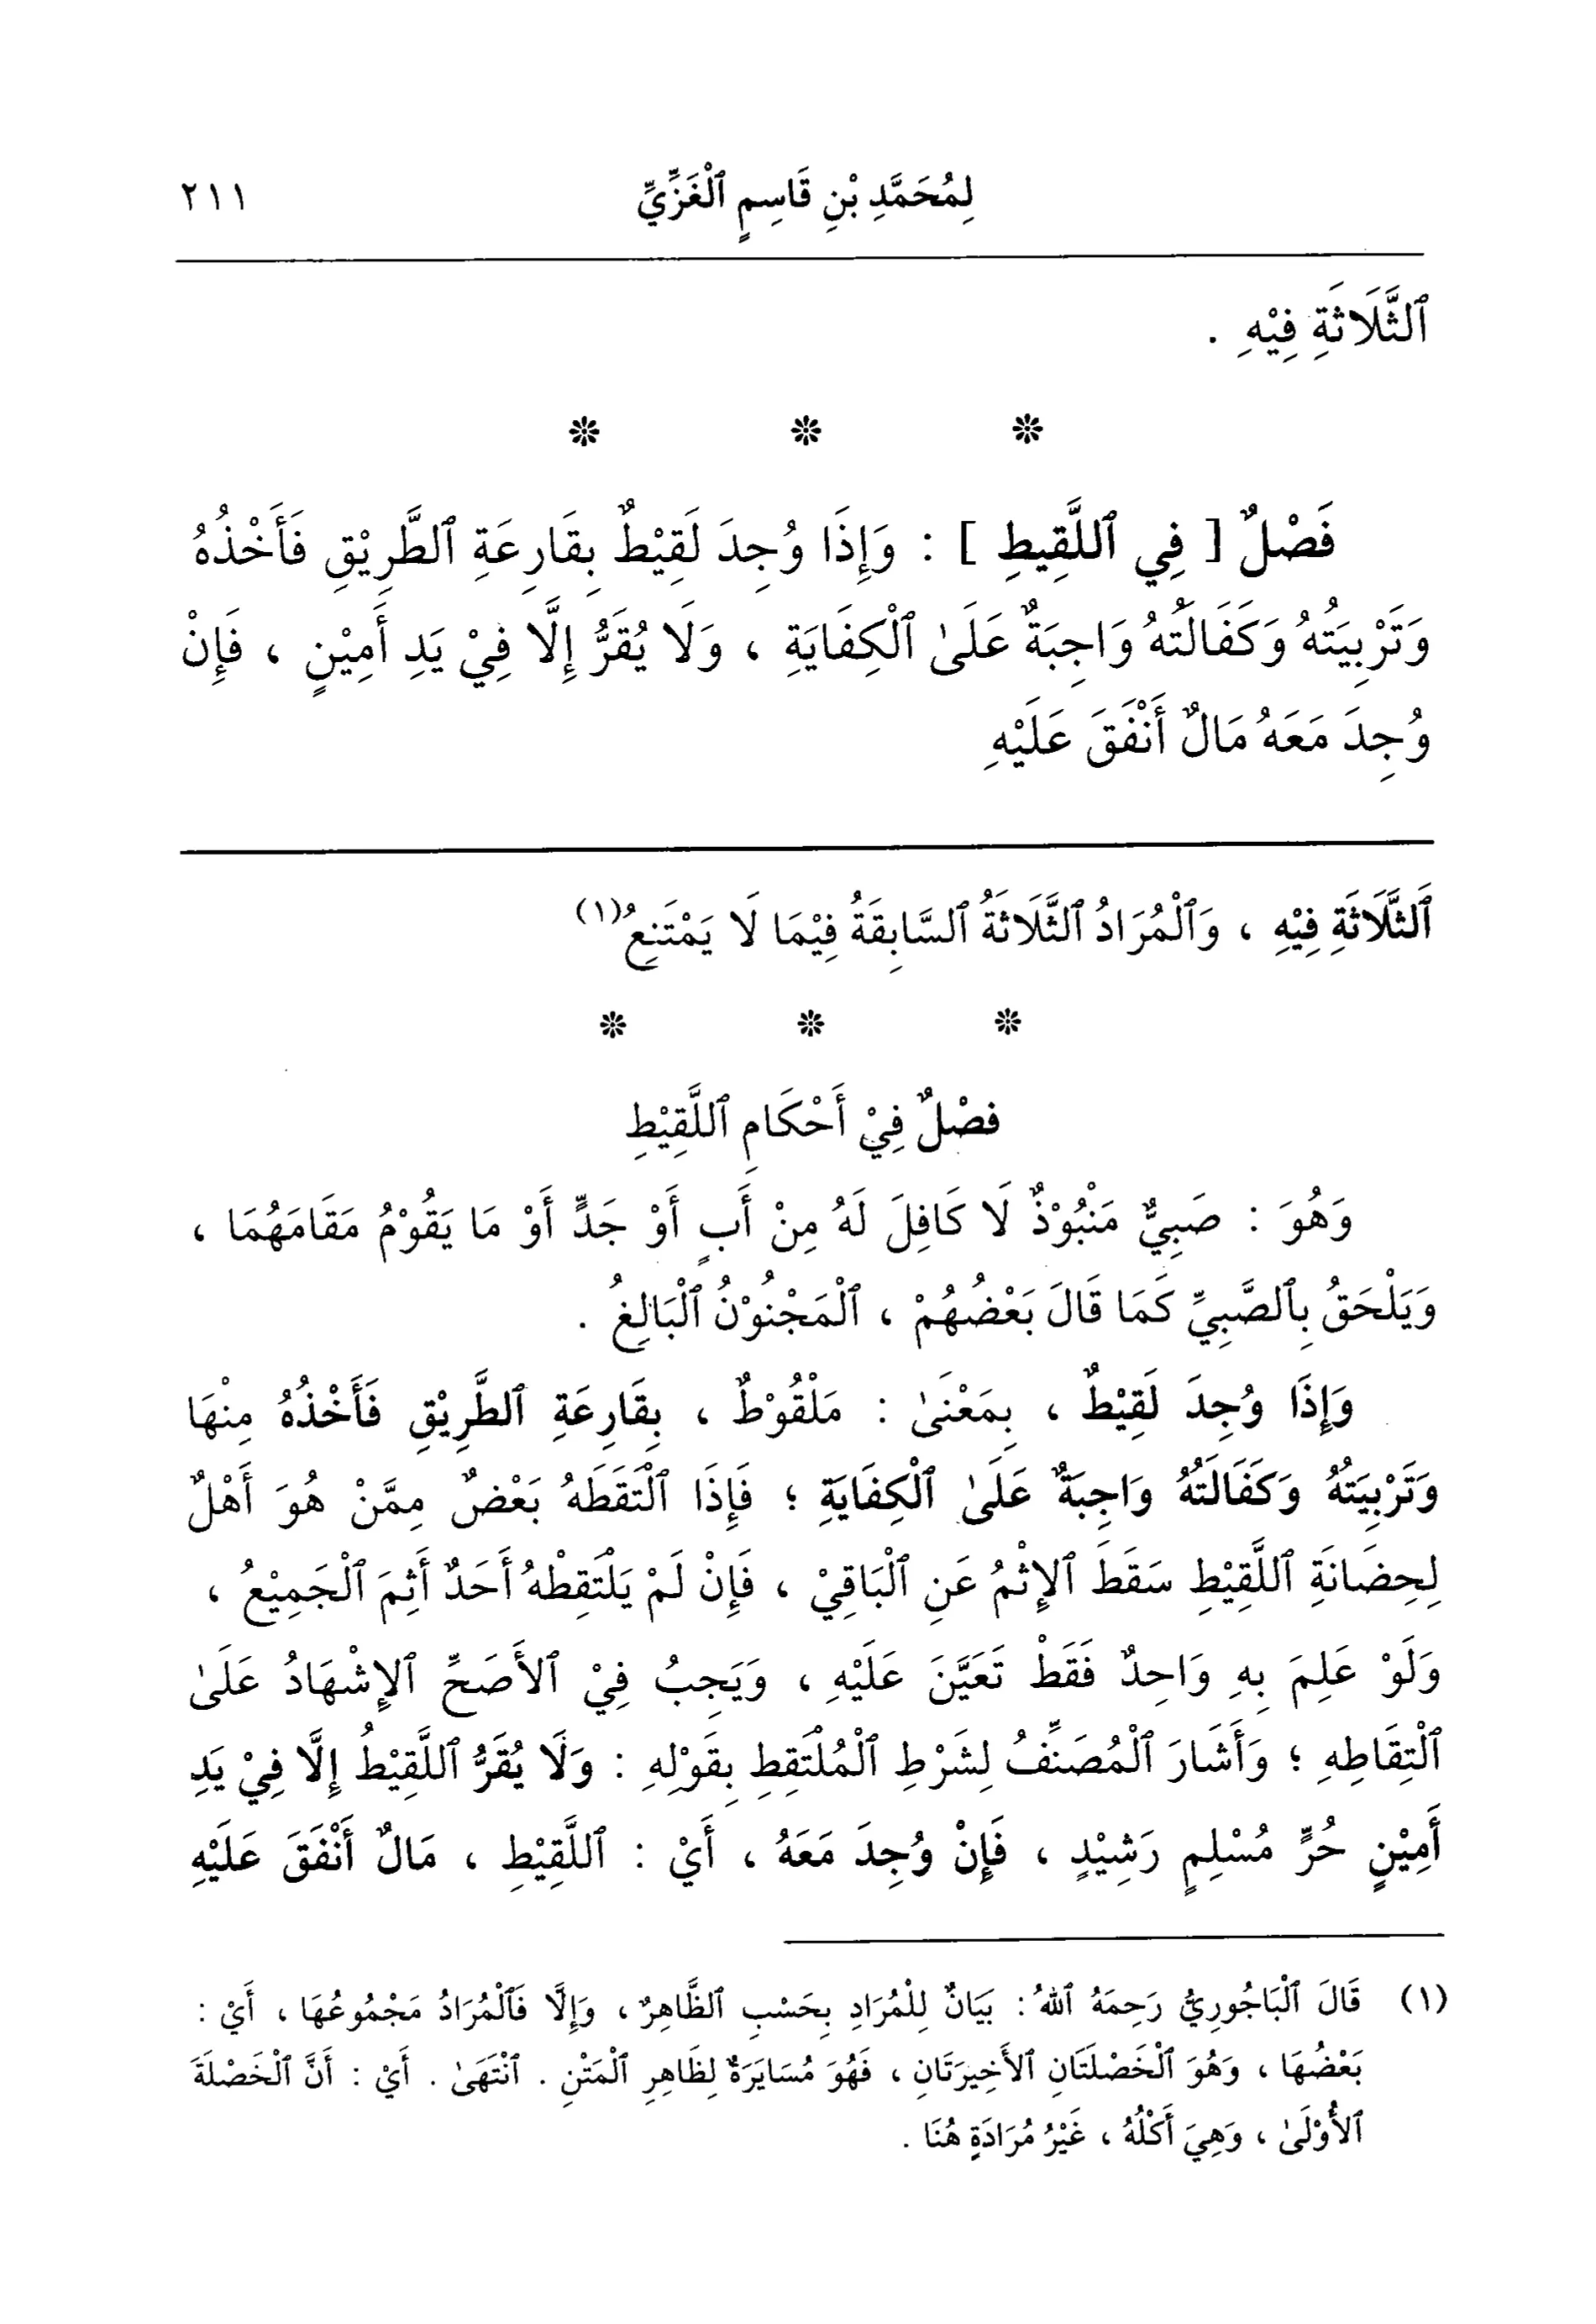 لِمُحَمَّدِ بْنِ قَاسِمٍ ٱلْغَزِّيِّ ٢١١
ٱلثَّلَاثَةِ فِيْهِ .
فَصْلٌ [ فِي ٱللَّقِيطِ ] : وَإِذَا وُجِدَ لَقِيْطٌ بِقَارِعَةِ ٱلطَّرِيْقِ فَأَخْذُهُ
وَتَرْبِيَتُهُ وَكَفَالَتُهُ وَاجِبَةٌ عَلَىٰ ٱلْكِفَايَةِ ، وَلَا يُقَرُّ إِلَّا فِيْ يَدِ أَمِيْنٍ ، فَإِنْ
وُجِدَ مَعَهُ مَالٌ أَنْفَقَ عَلَيْهِ
ٱلثَّلَاثَةِ فِيْهِ ، وَٱلْمُرَادُ ٱلثَّلَاثَةُ ٱلسَّابِقَةُ فِيْمَا لَا يَمْتَنِعُ(١)
فصْلٌ فِيْ أَحْكَامِ ٱللَّقِيْطِ
وَهُوَ : صَبِيٌّ مَنْبُوْذٌ لَا كَافِلَ لَهُ مِنْ أَبٍ أَوْ جَدٍّ أَوْ مَا يَقُوْمُ مَقَامَهُمَا ،
وَيَلْحَقُ بِٱلصَّبِيِّ كَمَا قَالَ بَعْضُهُمْ ، ٱلْمَجْنُوْنُ ٱلْبَالِغُ .
وَإِذَا وُجِدَ لَقِيْطٌ ، بِمَعْنَىٰ : مَلْقُوْطٌ ، بِقَارِعَةِ ٱلطَّرِيْقِ فَأَخْذُهُ مِنْهَا
وَتَرْبِيَتُهُ وَكَفَالَتُهُ وَاجِبَةٌ عَلَىٰ ٱلْكِفَايَةِ ؛ فَإِذَا ٱلْتَقَطَهُ بَعْضٌ مِمَّنْ هُوَ أَهْلٌ
لِحِضَانَةِ ٱللَّقِيْطِ سَقَطَ ٱلإِثْمُ عَنِ ٱلْبَاقِيْ ، فَإِنْ لَمْ يَلْتَقِطْهُ أَحَدٌ أَثِمَ ٱلْجَمِيْعُ ،
وَلَوْ عَلِمَ بِهِ وَاحِدٌ فَقَطْ تَعَيَّنَ عَلَيْهِ ، وَيَجِبُ فِيْ ٱلأَصَحِّ ٱلإِشْهَادُ عَلَىٰ
ٱلْتِقَاطِهِ ؛ وَأَشَارَ ٱلْمُصَنِّفُ لِشَرْطِ ٱلْمُلْتَقِطِ بِقَوْلِهِ : وَلَا يُقَرُّ ٱللَّقِيْطُ إِلَّا فِيْ يَدِ
أَمِيْنٍ حُرٍّ مُسْلِمٍ رَشِيْدٍ ، فَإِنْ وُجِدَ مَعَهُ ، أَيْ : ٱللَّقِيْطِ ، مَالٌ أَنْفَقَ عَلَيْهِ
(١) قَالَ ٱلْبَاجُورِيُّ رَحِمَهُ ٱللهُ : بَيَانٌ لِلْمُرَادِ بِحَسْبِ ٱلظَّاهِرٌ ، وَإِلَّا فَٱلْمُرَادُ مَجْمُوعُهَا ، أَيْ :
بَعْضُهَا ، وَهُوَ ٱلْخَصْلَتَانِ ٱلأَخِيرَتَانِ ، فَهُوَ مُسَايَرَةٌ لِظَاهِرِ ٱلْمَتْنِ . ٱنْتَهَىٰ . أَيْ : أَنَّ ٱلْخَصْلَةَ
ٱلأُوْلَىٰ ، وَهِيَ أَكْلُهُ ، غَيْرُ مُرَادَةٍ هُنَا .